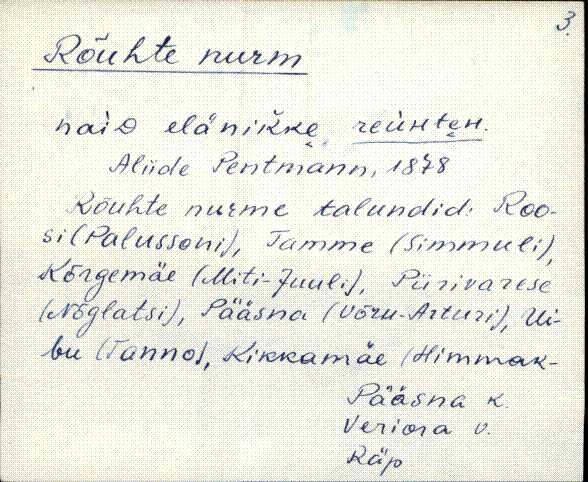 3.
Rõuhte nurm
naiᴅ elänikke̬ reùhte̬н.
Aliide Pentmann, 1878
Rõuhte nurme talundid: Roo-
si (Palussoni), Tamme (Simmuli),
Kõrgemäe (Miti-Juuli), Piirivarese
(Nõglatsi), Pääsna (Võru-Arturi), Ui-
bu (Tanno), Kikkamäe (Himmak-
Pääsna k.
Veriora v.
Räp